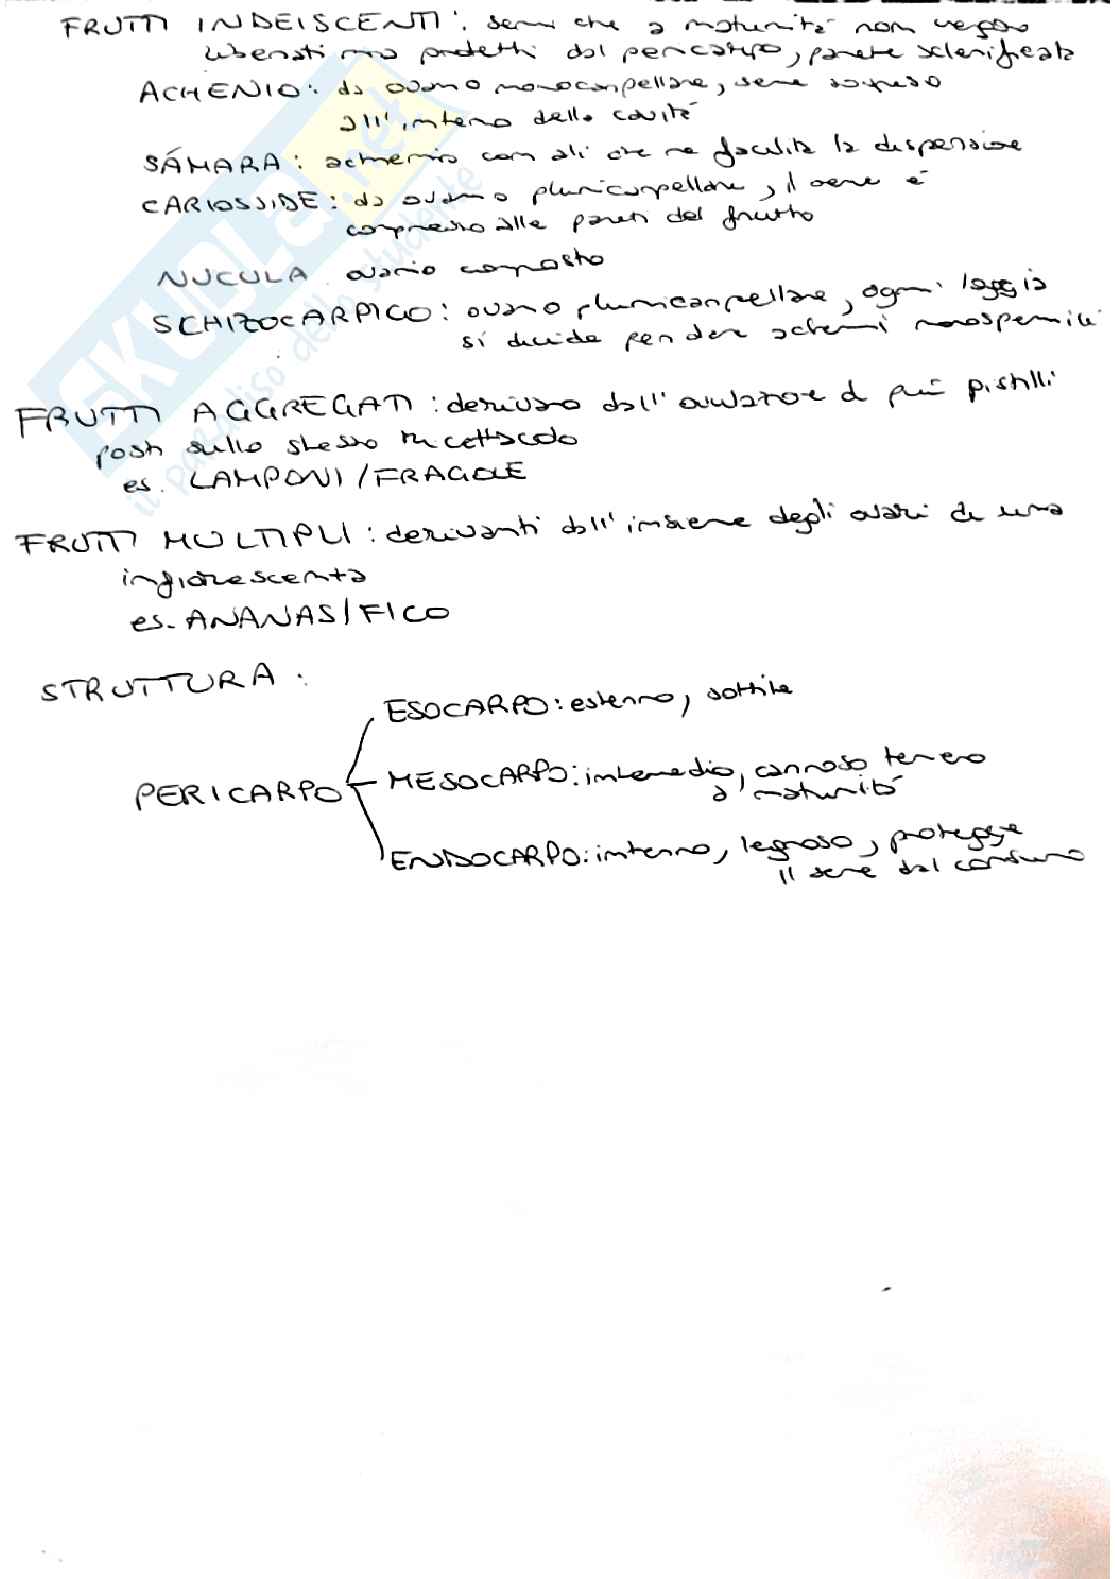 FRUTTI INDEISCENTI: semi che a maturità non vengono
liberati ma protetti dal pericarpo, parete sclerificata
ACHENIO: da ovario monocarpellare, seme sospeso
all'interno della cavità
SÁMARA: achenio con ali che ne facilita la dispersione
CARIOSSIDE: da ovario pluricarpellare, il seme è
compresso alle pareti del frutto
NUCULA ovario composto
SCHIZOCARPICO: ovario pluricarpellare, ogni loggia
si divide per dare acheni monospermici
FRUTTI AGGREGATI: derivano dall' di più pistilli
posti sullo stesso ricettacolo
es. LAMPONI/FRAGOLE
FRUTTI MULTIPLI: derivanti dall'insieme degli ovari di una
infiorescenza
es. ANANAS/FICO
STRUTTURA:
ESOCARPO: esterno, sottile
PERICARPO MESOCARPO: intermedio, carnoso tenero
a maturità
ENDOCARPO: interno, legnoso, protegge
il seme dal consumo
SKUOLA.net
il paradiso dello studente